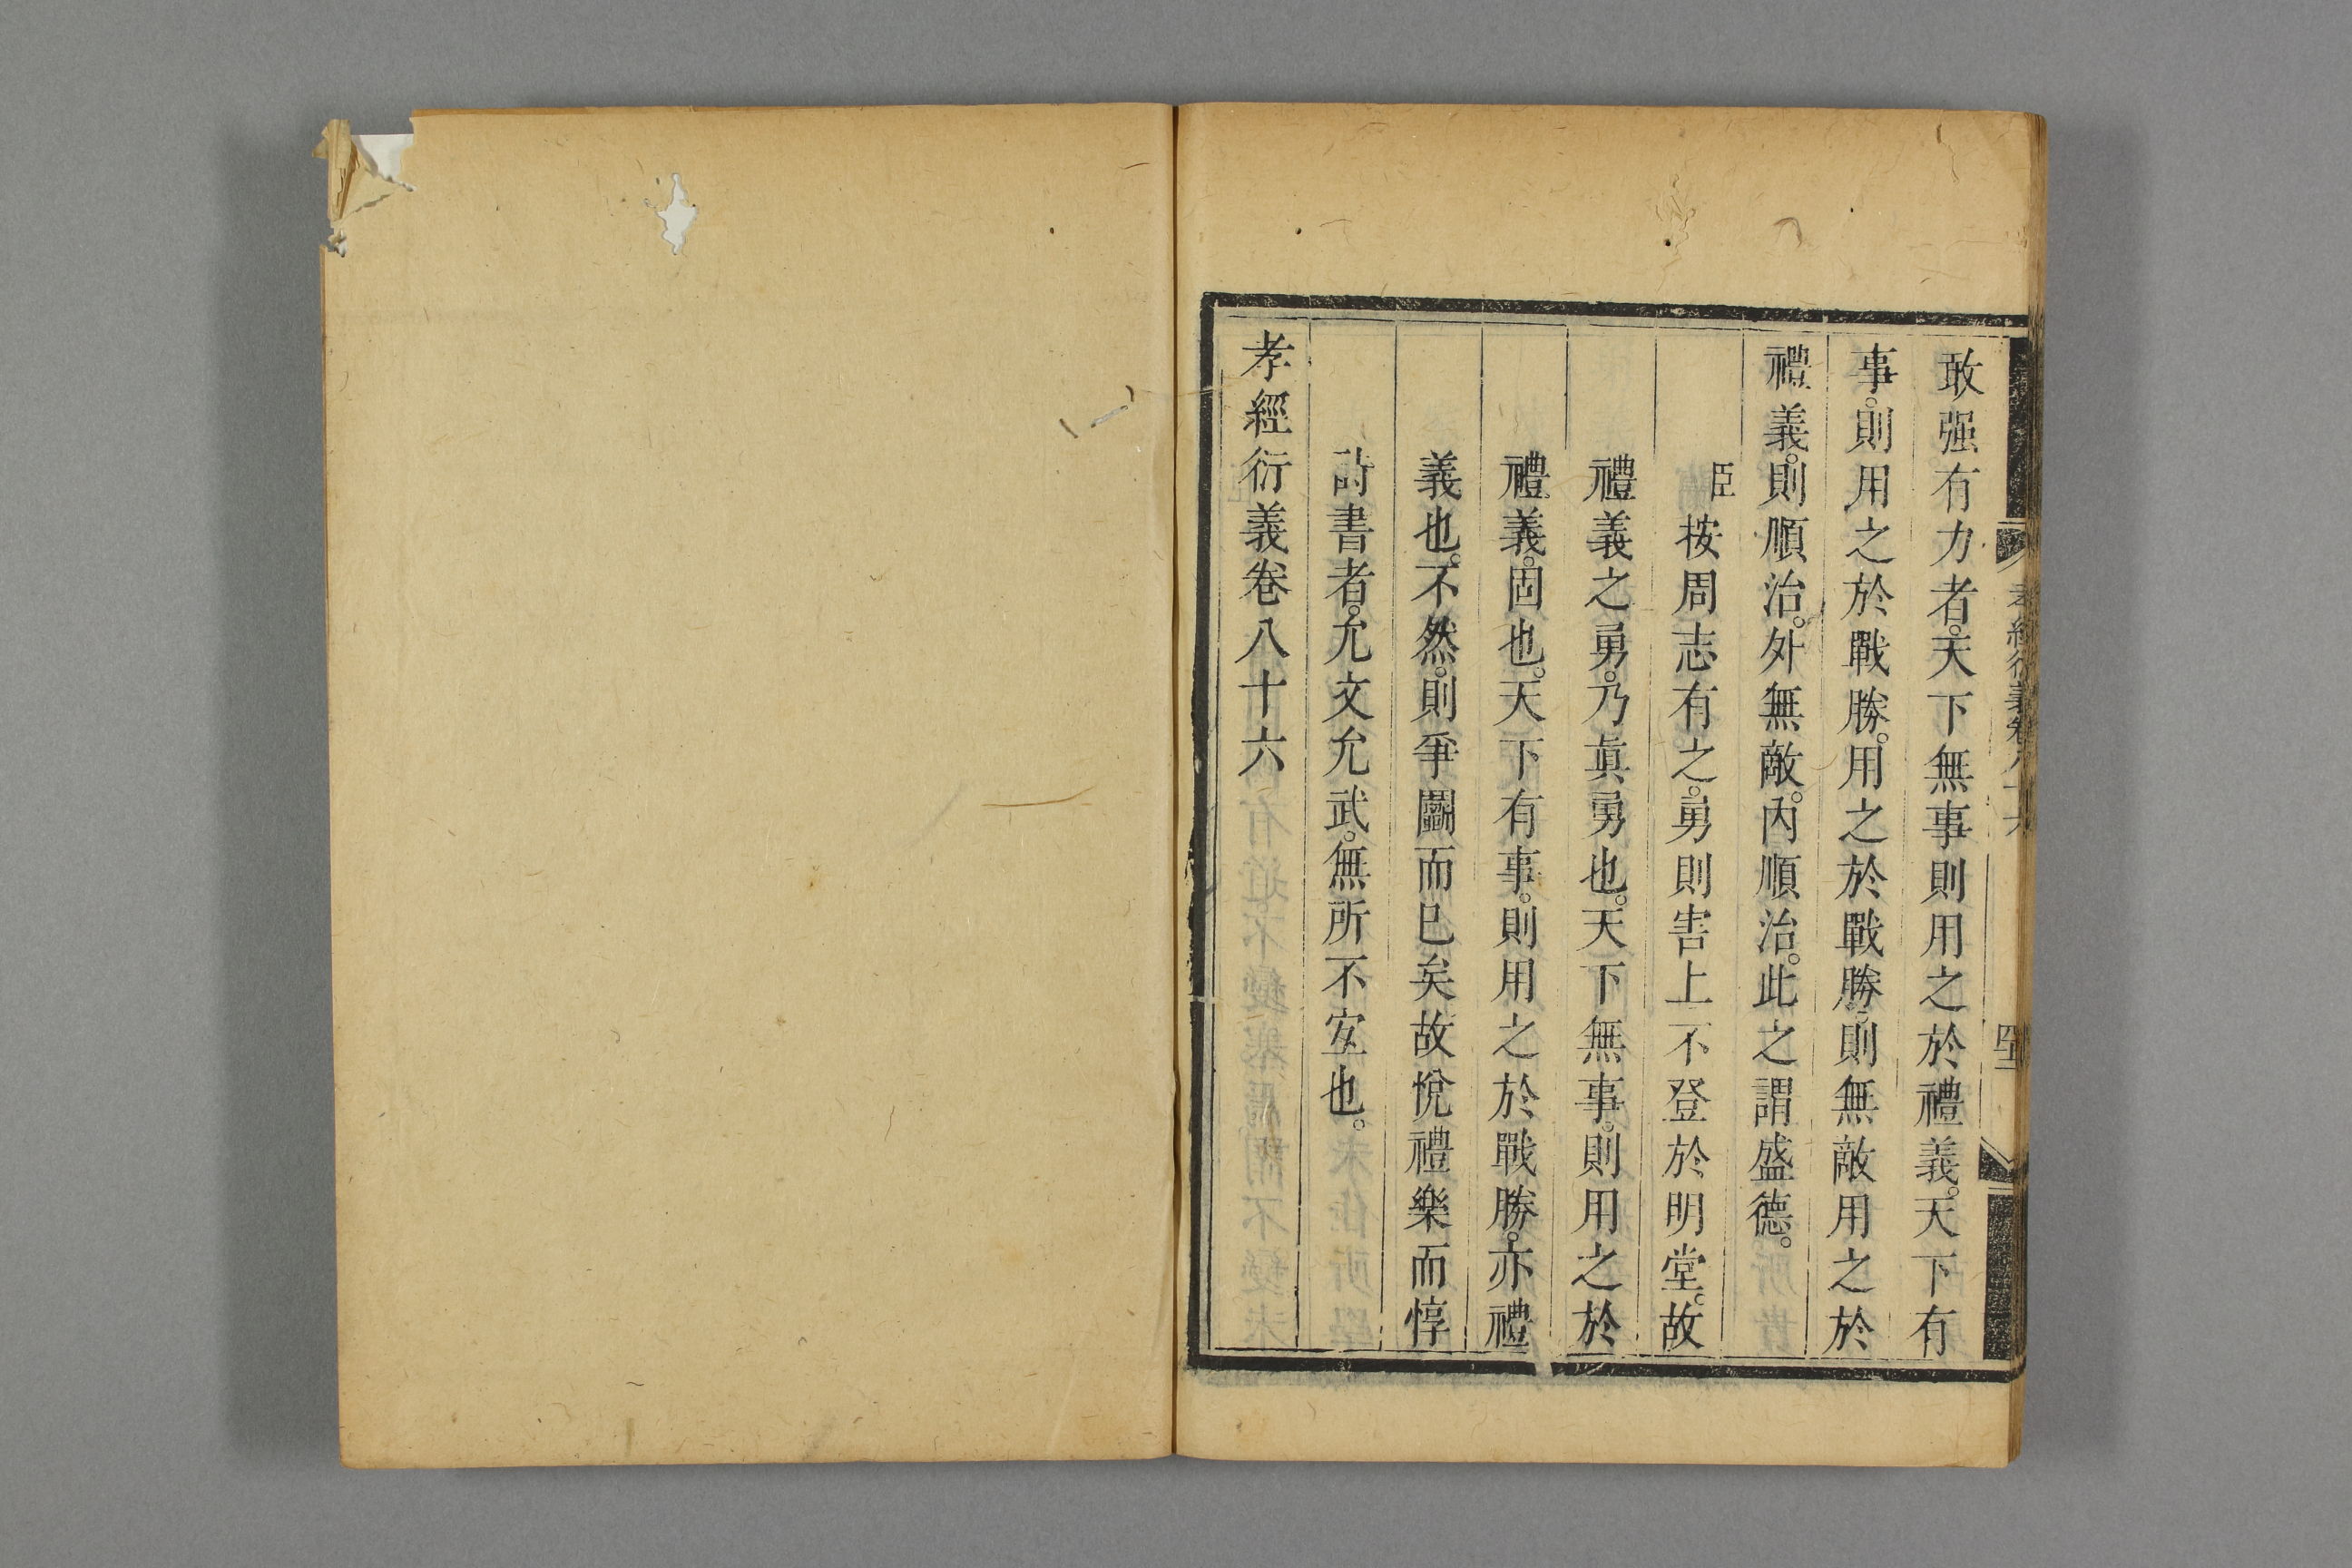 敢强有力者。天下無事則用之於禮義。天下有
事。則用之於戰勝。用之於戰勝。則無敵用之於
禮義。則順治。外無敵。內順治。此之謂盛德。
臣按周志有之。勇則害上不登於明堂。故
禮義之勇。乃眞勇也。天下無事。則用之於
禮義。固也。天下有事。則用之於戰勝。亦禮
義也。不然。則爭鬭而已矣故悅禮樂而惇
詩書者。允文允武。無所不宐也。
孝經衍義卷八十六
孝經衍義卷八十六